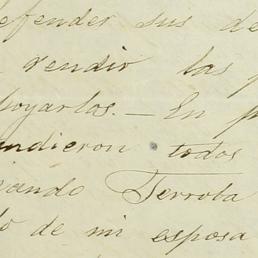 efender sus de
rendir las p
poyarlos. — En p
undieron todos
nando Terrota
do de mi esposa